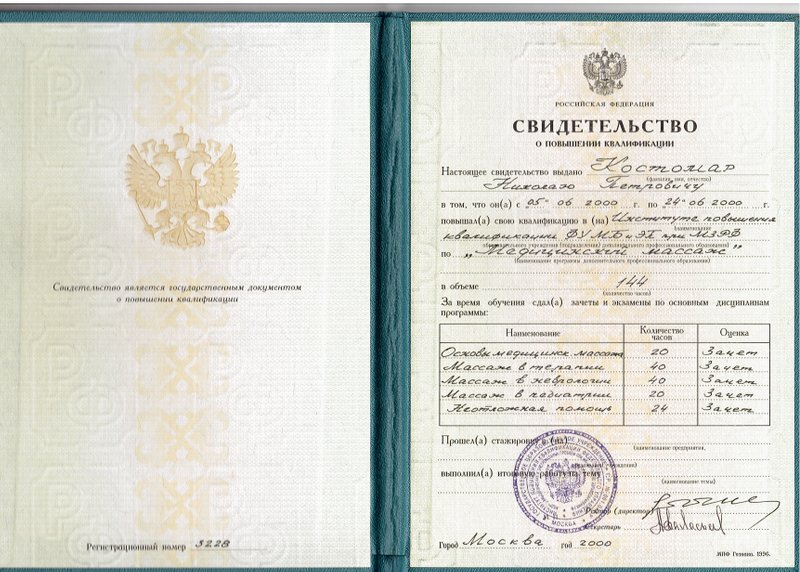 Свидетельство является государственным документом
о повышении квалификации
Регистрационный номер 3228
РОССИЙСКАЯ ФЕДЕРАЦИЯ
СВИДЕТЕЛЬСТВО
О ПОВЫШЕНИИ КВАЛИФИКАЦИИ
Настоящее свидетельство выдано Костомар
(фамилия, имя, отчество)
Николаю Петровичу
в том, что он(а) с 05 06 2000 г. по 24 06 2000 г.
повышал(а) свою квалификацию в (на) Институте повышения
(наименование
квалификации ФУ МБ и ЭП при МЗ РФ
образовательного учреждения (подразделения) дополнительного профессионального образования)
по „Медицинский массаж"
(наименование программы дополнительного профессионального образования)
в объеме 144
(количество часов)
За время обучения сдал(а) зачеты и экзамены по основным дисциплинам
программы:
Наименование Количество часов Оценка
Основы медицинск. массажа 20 Зачет
Массаж в терапии 40 Зачет
Массаж в неврологии 40 Зачет
Массаж в педиатрии 20 Зачет
Неотложная помощь 24 Зачет
Прошел(а) стажировку в (на)
(наименование предприятия,
организации, учреждения)
выполнил(а) итоговую работу на тему
(наименование темы)
МОСКВА
Ректор (директор)
Секретарь
Город Москва год 2000
МПФ Гознака. 1996.